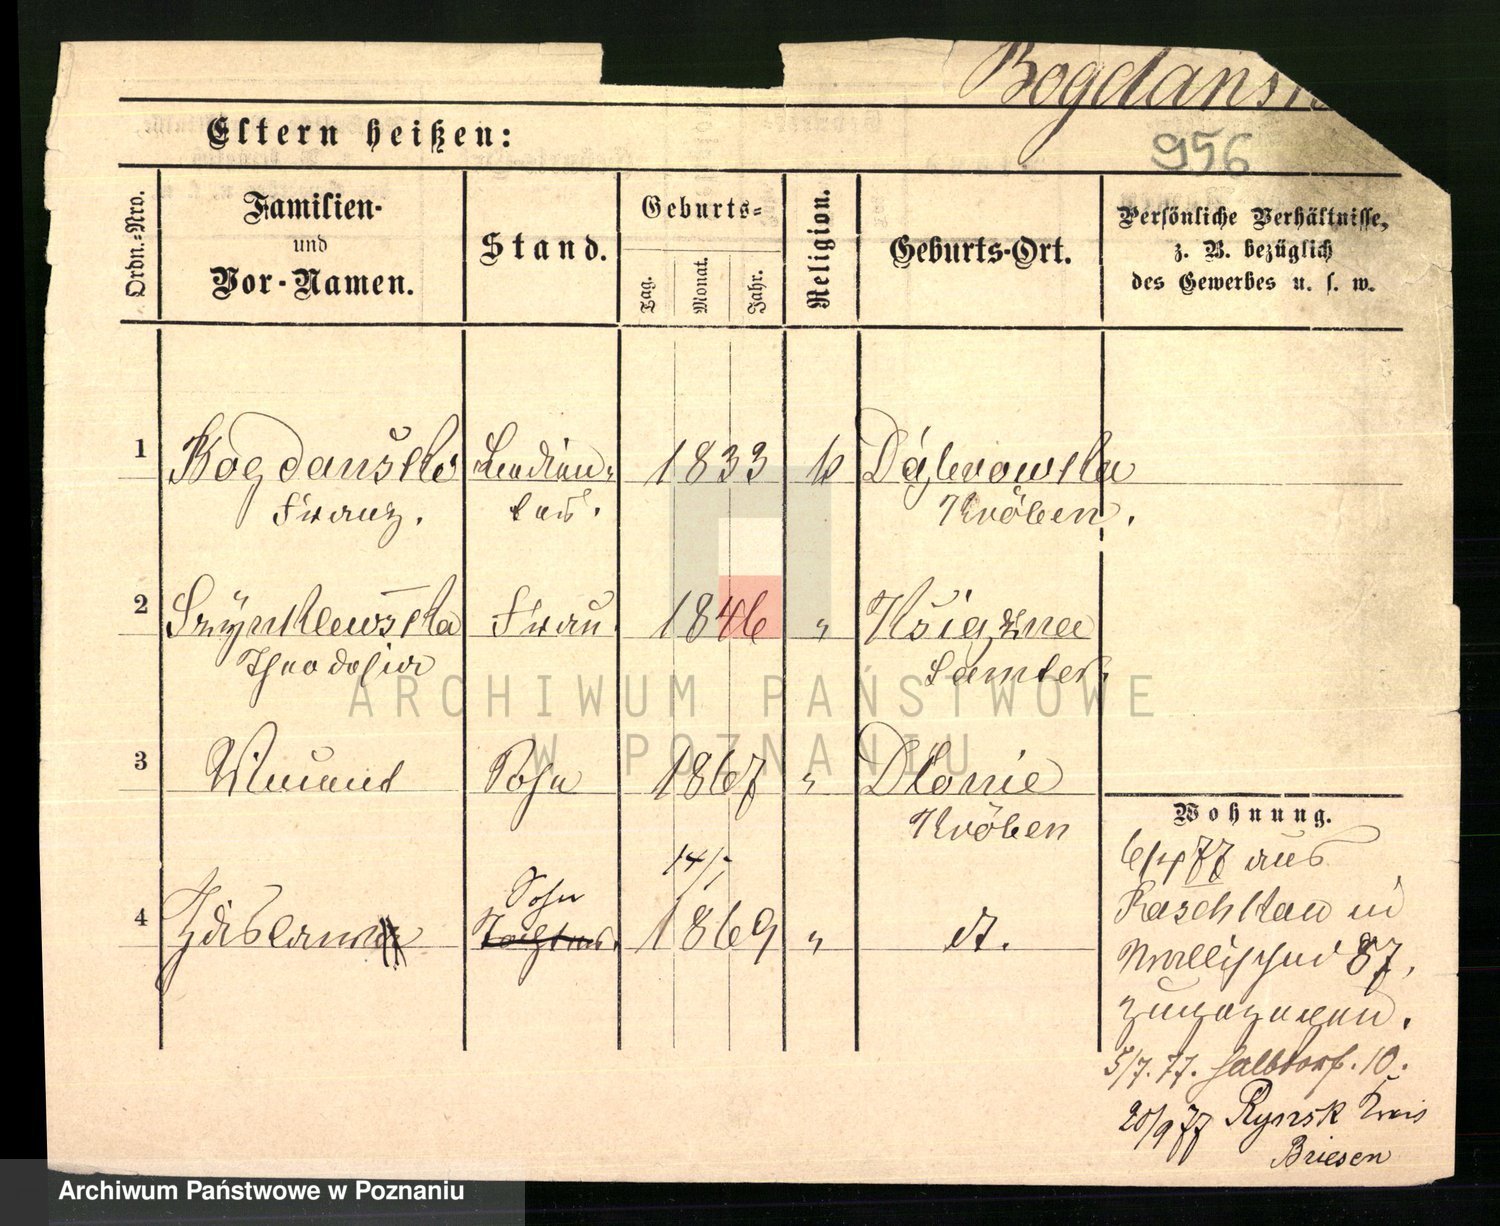 Bogdański
956
Eltern heißen:
Ordn.-Nro.
Familien-
und
Vor-Namen.
Stand.
Geburts-
Tag.
Monat.
Jahr.
Religion.
Geburts-Ort.
Persönliche Verhältnisse,
z. B. bezüglich
des Gewerbes u. s. w.
1 Bogdański 1833 k Dąbrowka
Franz. Kröben.
2 Szynklewska Frau 1846 " Książna
Theodosia Samter.
3 Vincent Sohn 1867 " Dłonie
Kröben
14/7
Sohn
4 Zdislaw Tochter. 1869 " dt.
Wohnung.
6/4 77 aus
Raschkau in
Wallischei 87,
zugezogen.
5/7. 77. Halbdorf. 10.
20/9 77 Rynsk Kreis
Briesen
ARCHIWUM PAŃSTWOWE
W POZNANIU
Archiwum Państwowe w Poznaniu